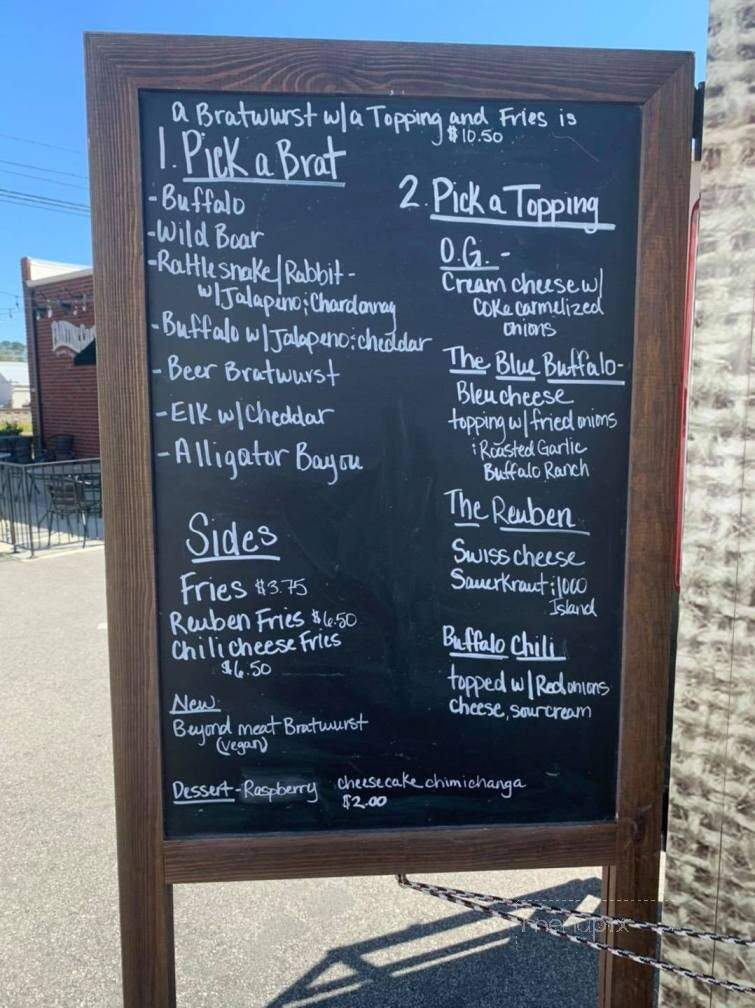 a Bratwurst w/a Topping and Fries is
$10.50
1. Pick a Brat
-Buffalo
-Wild Boar
-Rattlesnake/Rabbit-
w/Jalapeno & Chardonnay
-Buffalo w/Jalapeno & cheddar
-Beer Bratwurst
-Elk w/Cheddar
-Alligator Bayou
Sides
Fries $3.75
Reuben Fries $6.50
Chili cheese Fries
$6.50
New
Beyond meat Bratwurst
(vegan)
Dessert-Raspberry cheesecake chimichanga
$2.00
2. Pick a Topping
O.G. -
Cream cheese w/
Coke carmelized
onions
The Blue Buffalo-
Bleu cheese
topping w/fried onions
& Roasted Garlic
Buffalo Ranch
The Reuben
Swiss cheese
Sauerkraut & 1000
Island
Buffalo Chili
topped w/Red onions
cheese, sour cream
menupix